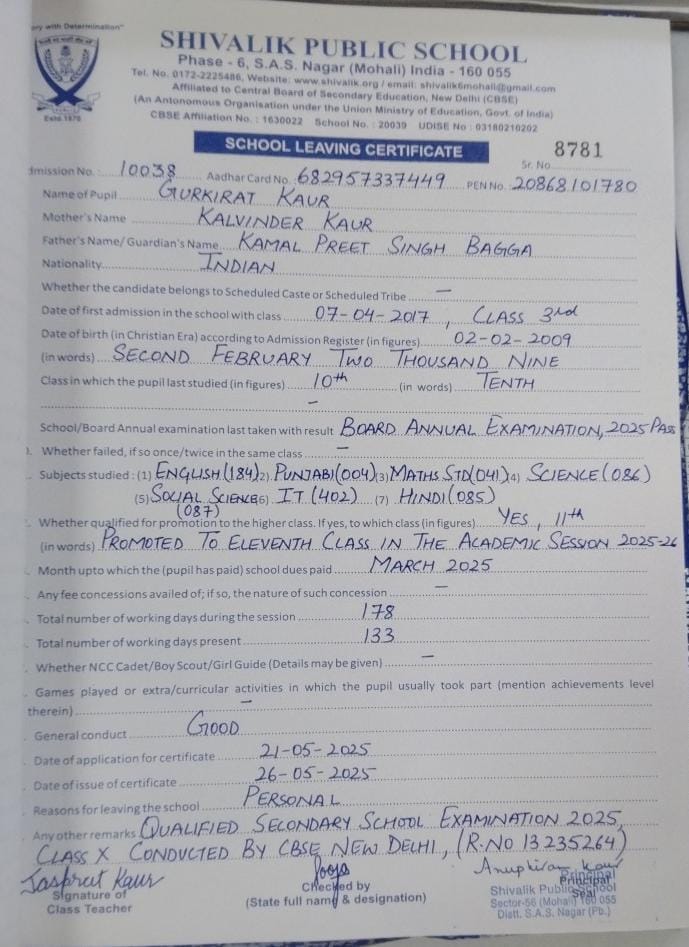 ory with Determination"
SHIVALIK PUBLIC SCHOOL
Phase - 6, S.A.S. Nagar (Mohali) India - 160 055
Tel. No. 0172-2225486, Website: www.shivalik.org / email: shivalik6mohali@gmail.com
Affiliated to Central Board of Secondary Education, New Delhi (CBSE)
(An Antonomous Organisation under the Union Ministry of Education, Govt. of India)
CBSE Affiliation No. : 1630022 School No. : 20039 UDISE No : 03180210202
Estd.1976
SCHOOL LEAVING CERTIFICATE
Sr. No. 8781
dmission No. 10038 Aadhar Card No. 682957337449 PEN No. 20868101780
Name of Pupil GURKIRAT KAUR
Mother's Name KALVINDER KAUR
Father's Name/ Guardian's Name KAMAL PREET SINGH BAGGA
Nationality INDIAN
Whether the candidate belongs to Scheduled Caste or Scheduled Tribe —
Date of first admission in the school with class 07-04-2017, CLASS 3rd
Date of birth (in Christian Era) according to Admission Register (in figures) 02-02-2009
(in words) SECOND FEBRUARY TWO THOUSAND NINE
Class in which the pupil last studied (in figures) 10th (in words) TENTH
—
School/Board Annual examination last taken with result BOARD ANNUAL EXAMINATION, 2025 PASS
). Whether failed, if so once/twice in the same class —
Subjects studied : (1) ENGLISH (184) (2) PUNJABI (004) (3) MATHS STD (041) (4) SCIENCE (086)
(5) SOCIAL SCIENCE (6) IT (402) (7) HINDI (085)
(087)
Whether qualified for promotion to the higher class. If yes, to which class (in figures) YES, 11th
(in words) PROMOTED TO ELEVENTH CLASS IN THE ACADEMIC SESSION 2025-26
Month upto which the (pupil has paid) school dues paid MARCH 2025
Any fee concessions availed of; if so, the nature of such concession —
Total number of working days during the session 178
Total number of working days present 133
Whether NCC Cadet/Boy Scout/Girl Guide (Details may be given) —
Games played or extra/curricular activities in which the pupil usually took part (mention achievements level
therein) —
General conduct GOOD
Date of application for certificate 21-05-2025
Date of issue of certificate 26-05-2025
Reasons for leaving the school PERSONAL
Any other remarks QUALIFIED SECONDARY SCHOOL EXAMINATION 2025,
CLASS X CONDUCTED BY CBSE NEW DELHI, (R.NO 13235264)
Jaspreet Kaur
Signature of
Class Teacher
Pooja
Checked by
(State full name & designation)
Anupkiran Kaur
Principal
Principal
Seal
Shivalik Public School
Sector-56 (Mohali) 160 055
Distt. S.A.S. Nagar (Pb.)